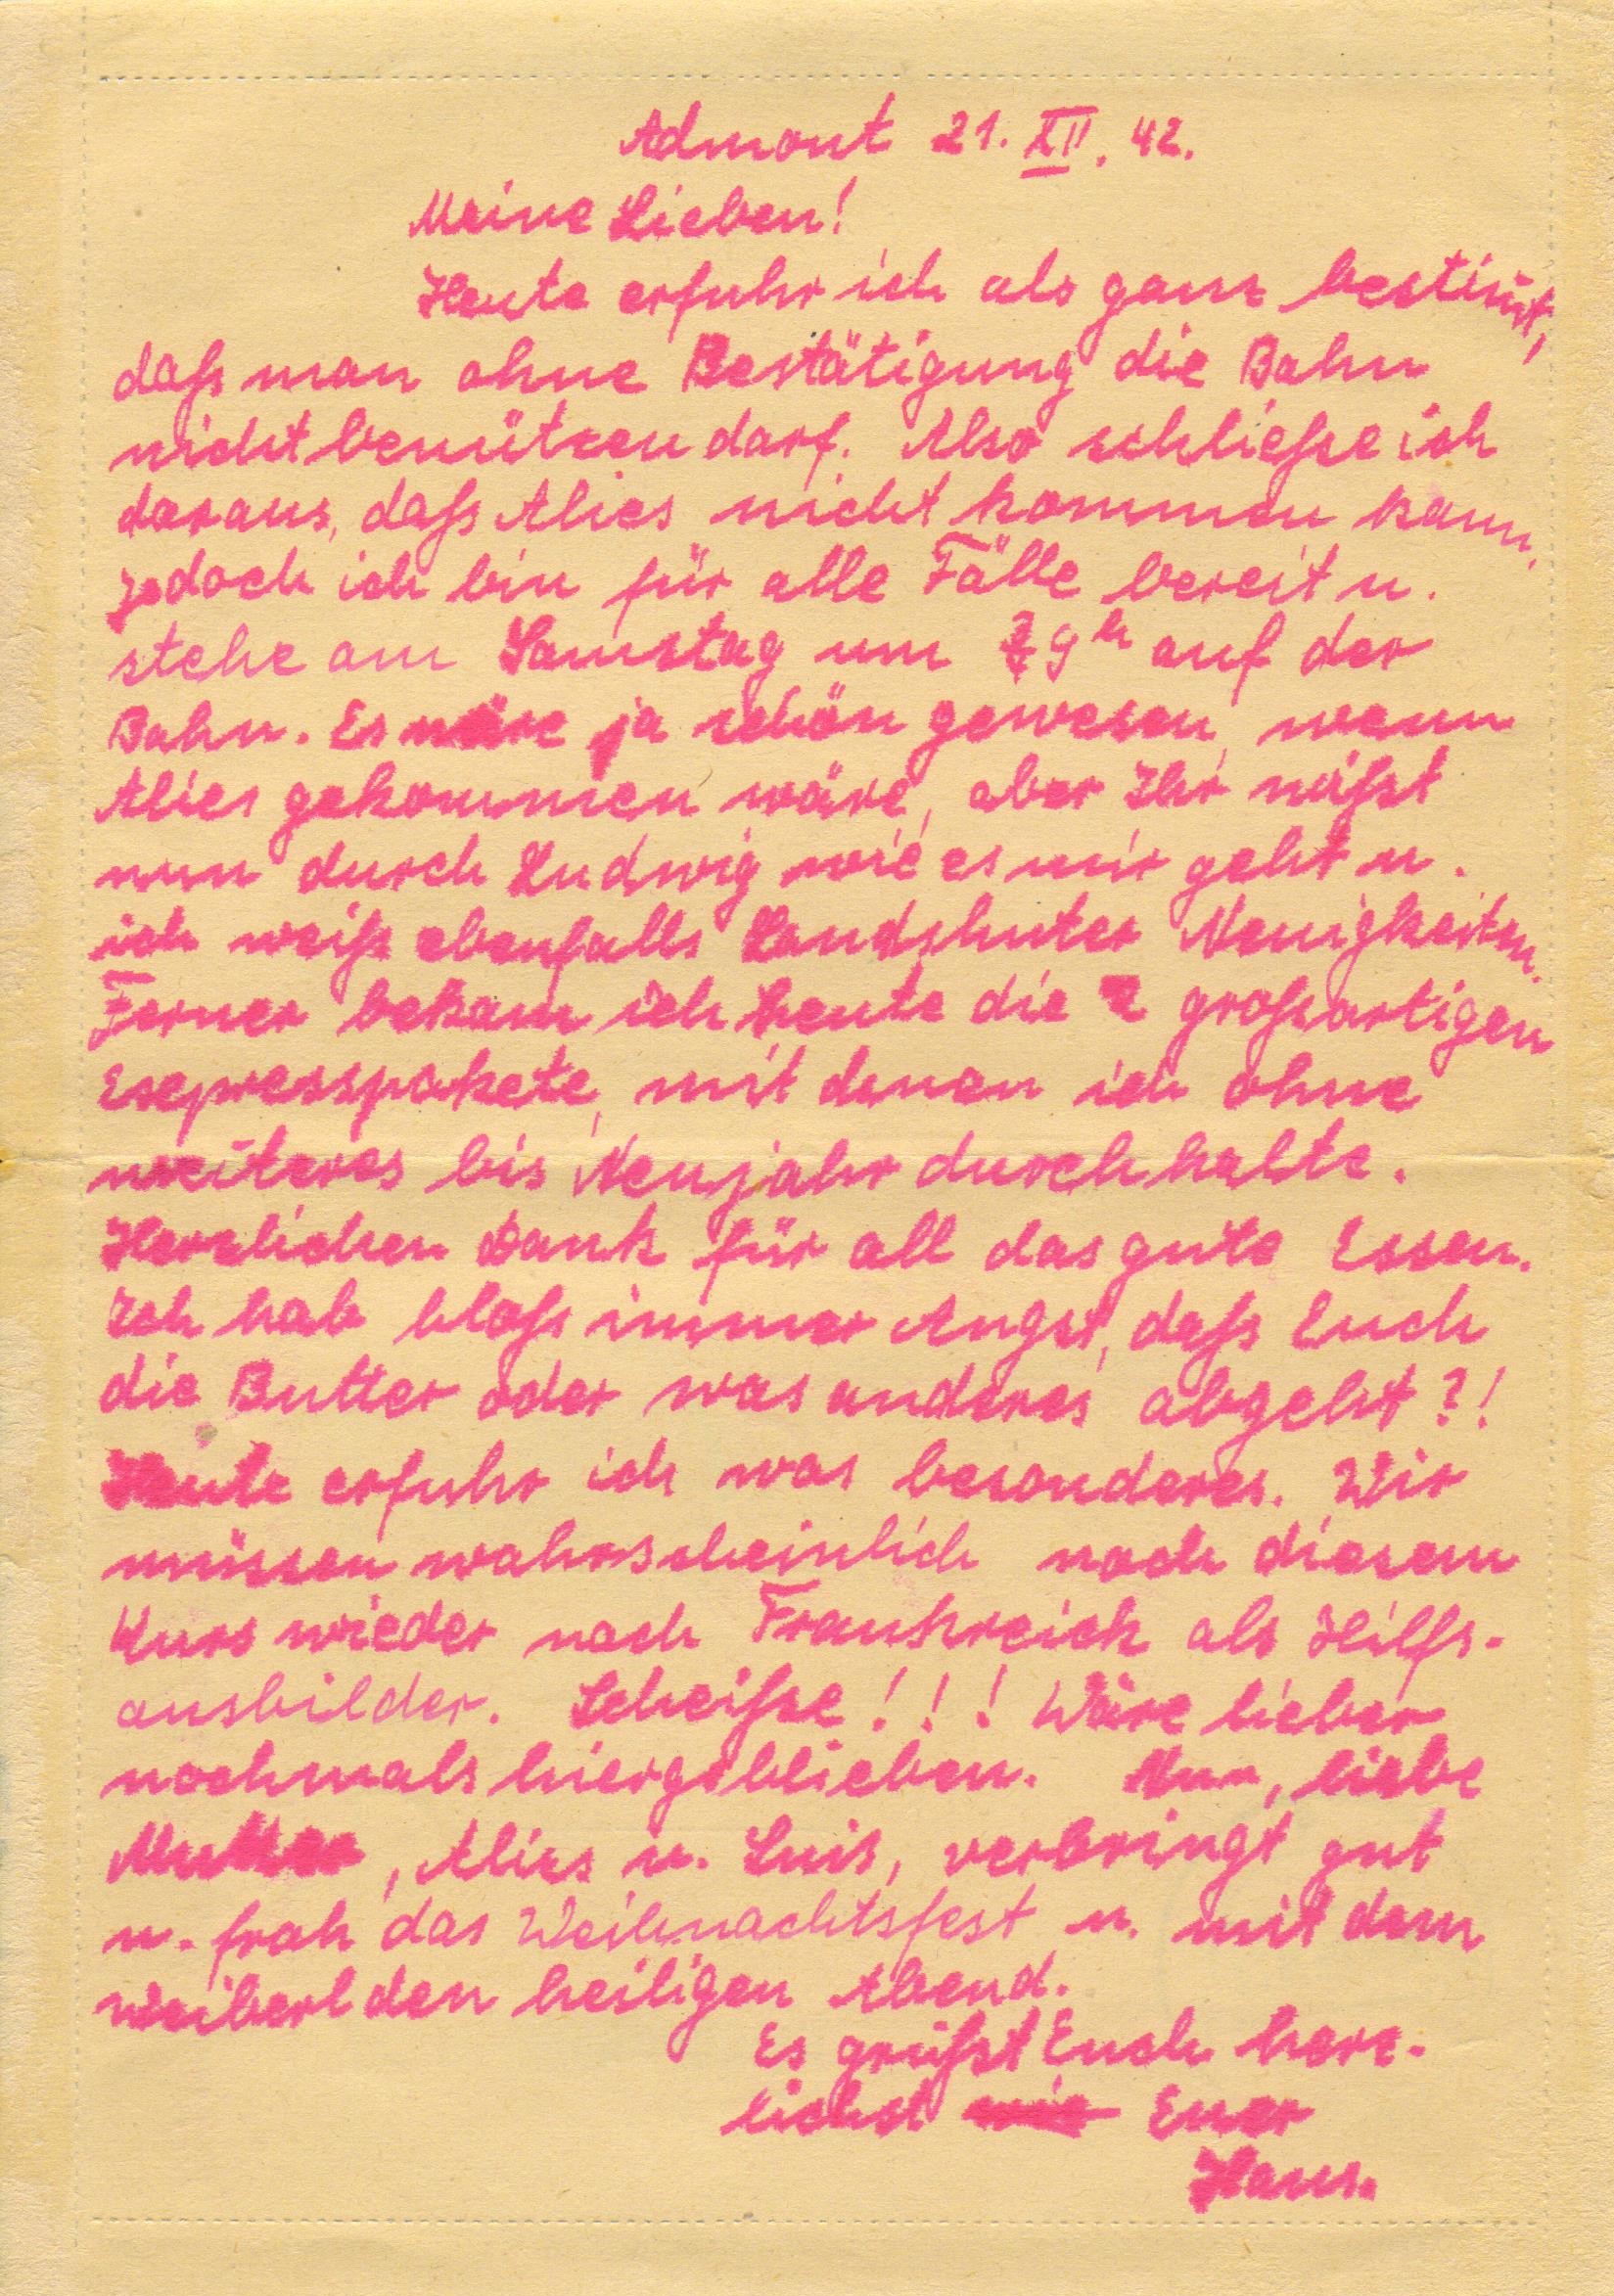 Admont 21. XII. 42.
Meine Lieben!
Heute erfuhr ich als ganz bestim̅t,
daß man ohne Bestätigung die Bahn
nicht benützen darf. Also schließe ich
daraus, daß Alies nicht kommen kann.
Jedoch ich bin für alle Fälle bereit u.
stehe am Samstag um 9h auf der
Bahn. Es wäre ja schön gewesen, wenn
Alies gekommen wäre, aber Ihr wißt
nun durch Ludwig wie es mir geht u.
ich weiß ebenfalls Landshuter Neuigkeiten.
Ferner bekam ich heute die 2 großartigen
Expresspakete, mit denen ich ohne
weiteres bis Neujahr durchhalte.
Herzlichen Dank für all das gute Essen.
Ich hab bloß immer Angst, daß Euch
die Butter oder was anderes abgeht?!
Heute erfuhr ich was besonderes. Wir
müssen wahrscheinlich nach diesem
Kurs wieder nach Frankreich als Hilfs-
ausbilder. Scheiße!!! Wäre lieber
nochmals hiergeblieben. Nun, liebe
Mutter, Alies u. Luis, verbringt gut
u. froh das Weihnachtsfest u. mit dem
Weiberl den heiligen Abend.
Es grüßt Euch herz-
lichst Euer
Hans.